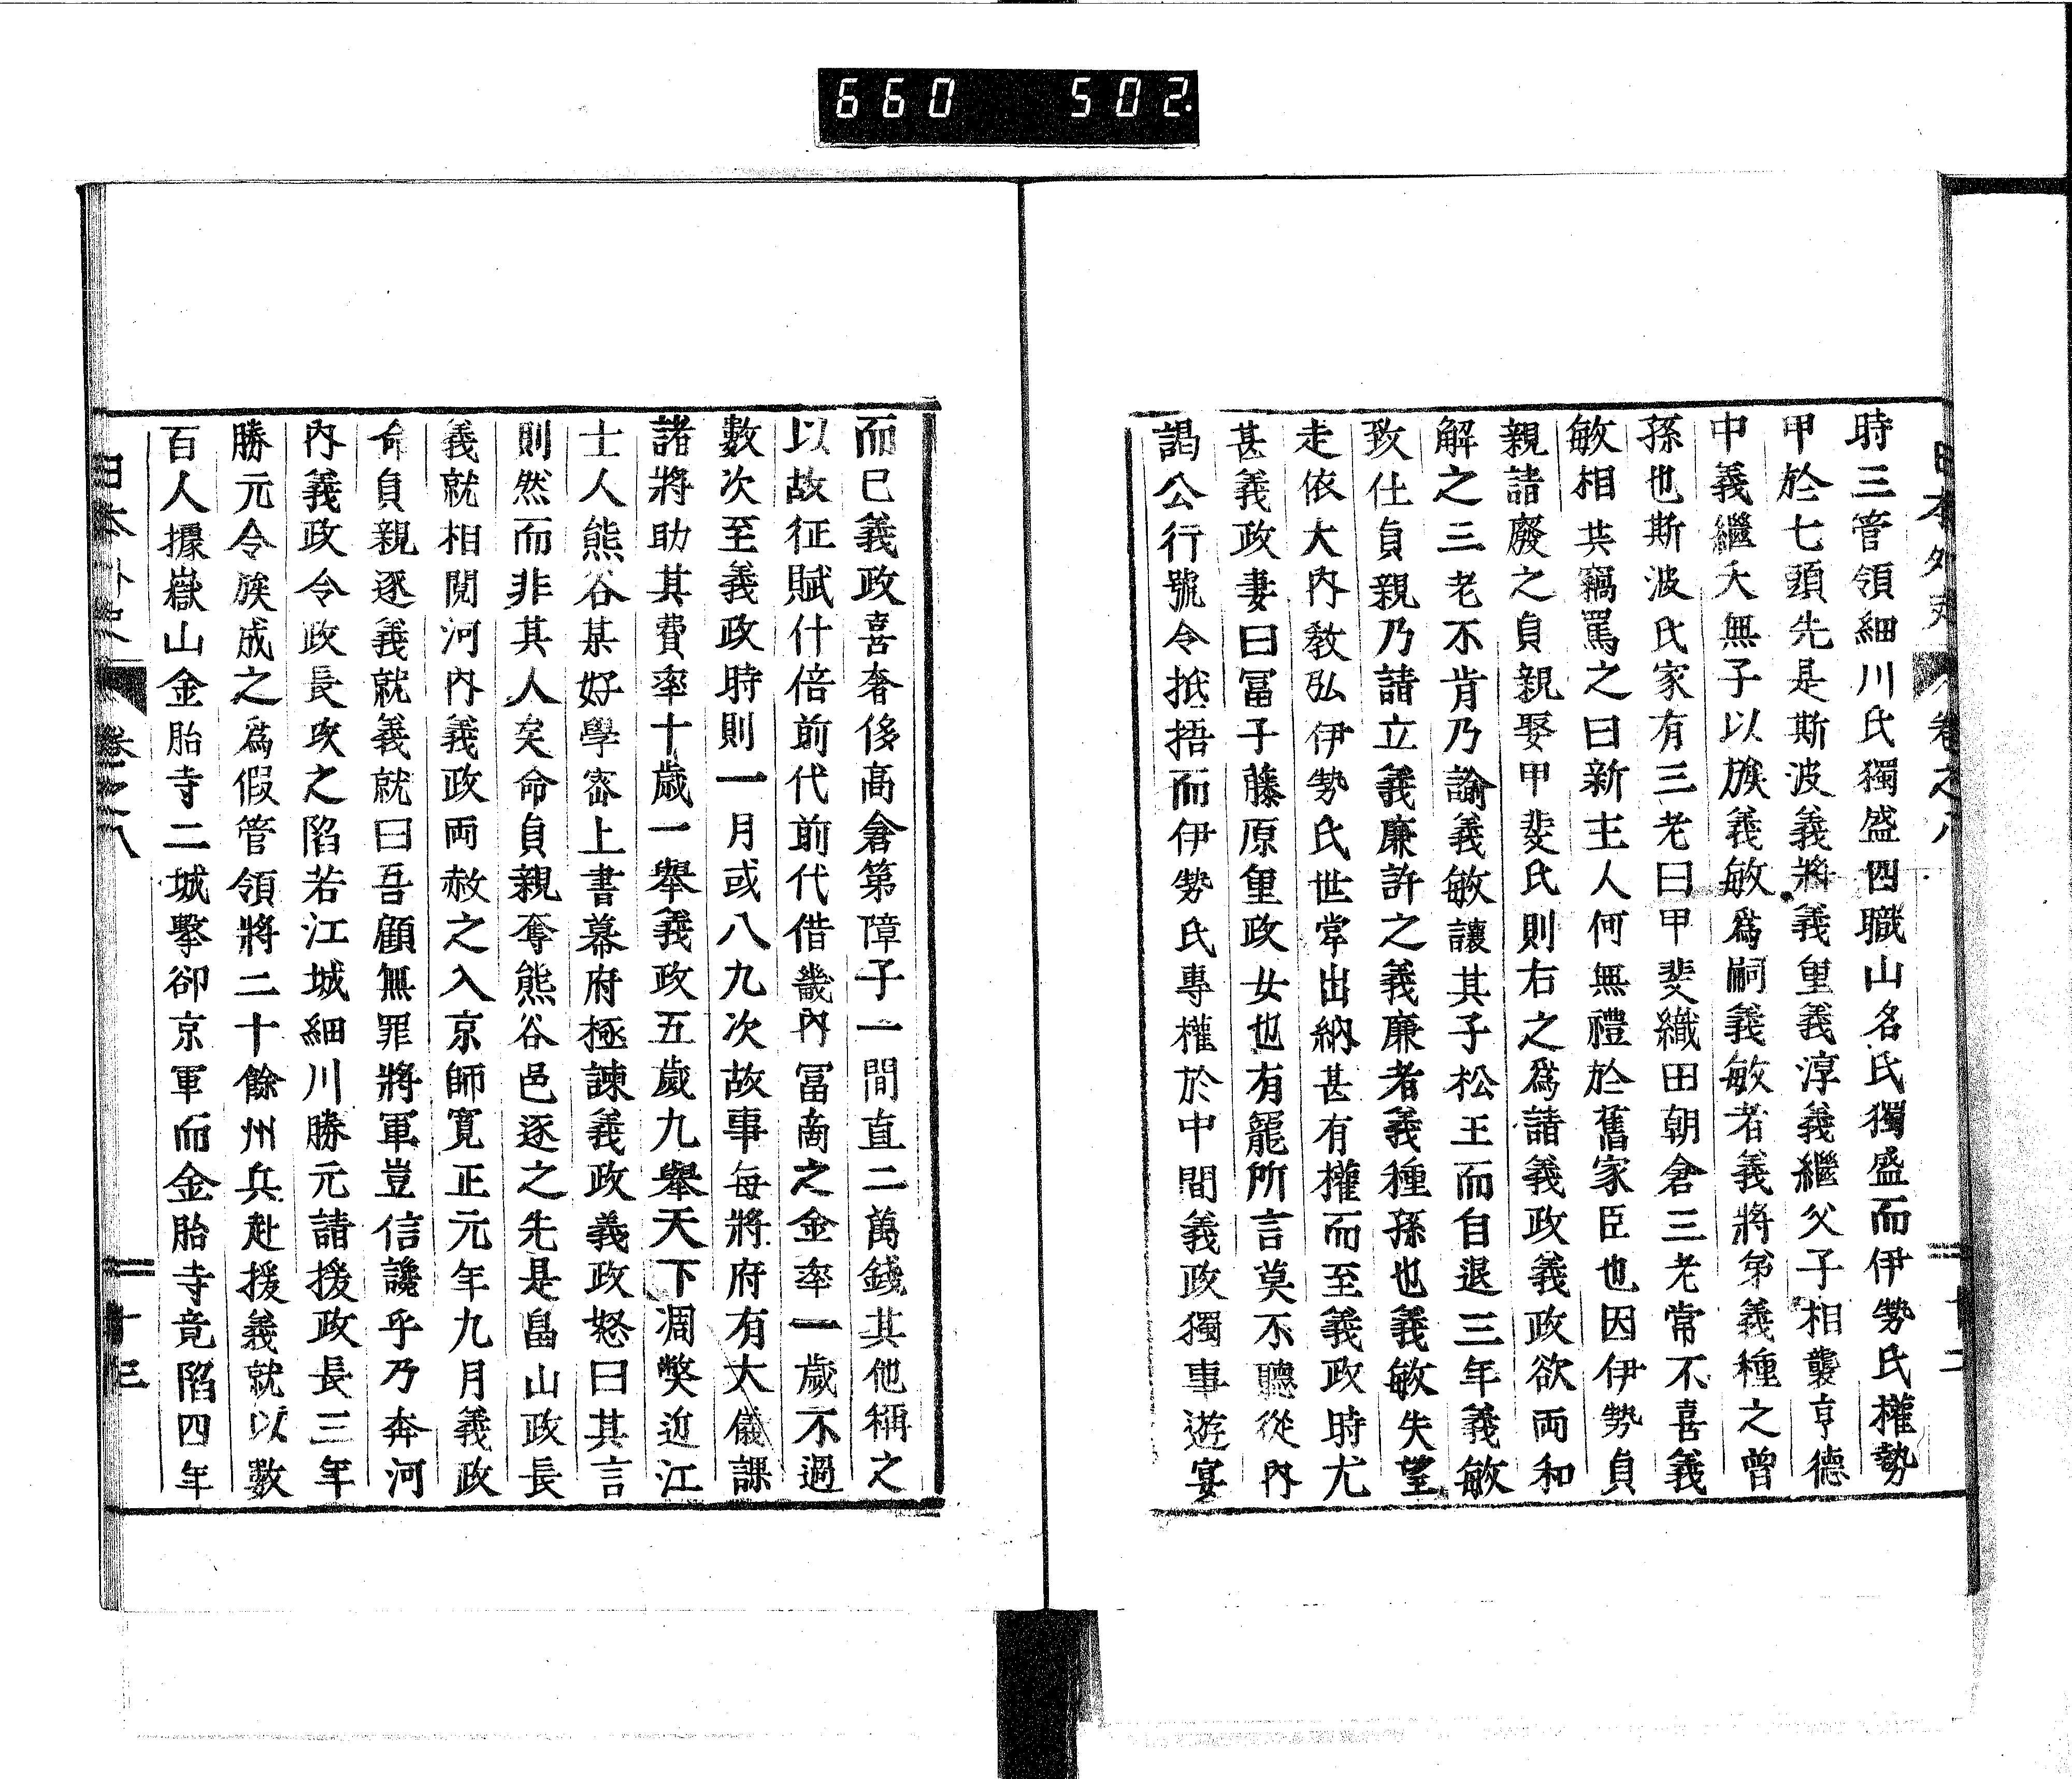 660 502.
日本外史 卷之八 十二
時三管領細川氏獨盛四職山名氏獨盛而伊勢氏權勢
甲於七頭先是斯波義將義重義淳義繼父子相襲享德
中義繼夭無子以族義敏爲嗣義敏者義將弟義種之曾
孫也斯波氏家有三老曰甲斐織田朝倉三老常不喜義
敏相共竊罵之曰新主人何無禮於舊家臣也因伊勢貞
親諸廢之貞親娶甲斐氏則右之爲諸義政義政欲両和
解之三老不肯乃諭義敏讓其子松王而自退三年義敏
致仕貞親乃諸立義廉許之義廉者義種孫也義敏失望
走依大內敎弘伊勢氏世掌出納甚有權而至義政時尤
甚義政妻曰冨子藤原重政女也有寵所言莫不聽從內
謁公行號令抵捂而伊勢氏專權於中間義政獨事遊宴
而已義政喜奢侈高倉第障子一間直二萬錢其他稱之
以故征賦什倍前代前代借畿內冨商之金率一歲不過
數次至義政時則一月或八九次故事每將府有大儀課
諸將助其費率十歲一舉義政五歲九舉天下凋弊近江
士人熊谷某好學密上書幕府極諫義政義政怒曰其言
則然而非其人矣命貞親奪熊谷邑逐之先是畠山政長
義就相鬩河內義政両赦之入京師寬正元年九月義政
命貞親逐義就義就曰吾顧無罪將軍豈信讒乎乃奔河
內義政令政長攻之陷若江城細川勝元諸援政長三年
勝元令族成之爲假管領將二十餘州兵赴援義就以數
百人據嶽山金胎寺二城擊卻京軍而金胎寺竟陷四年
日本外史 卷之八 十三